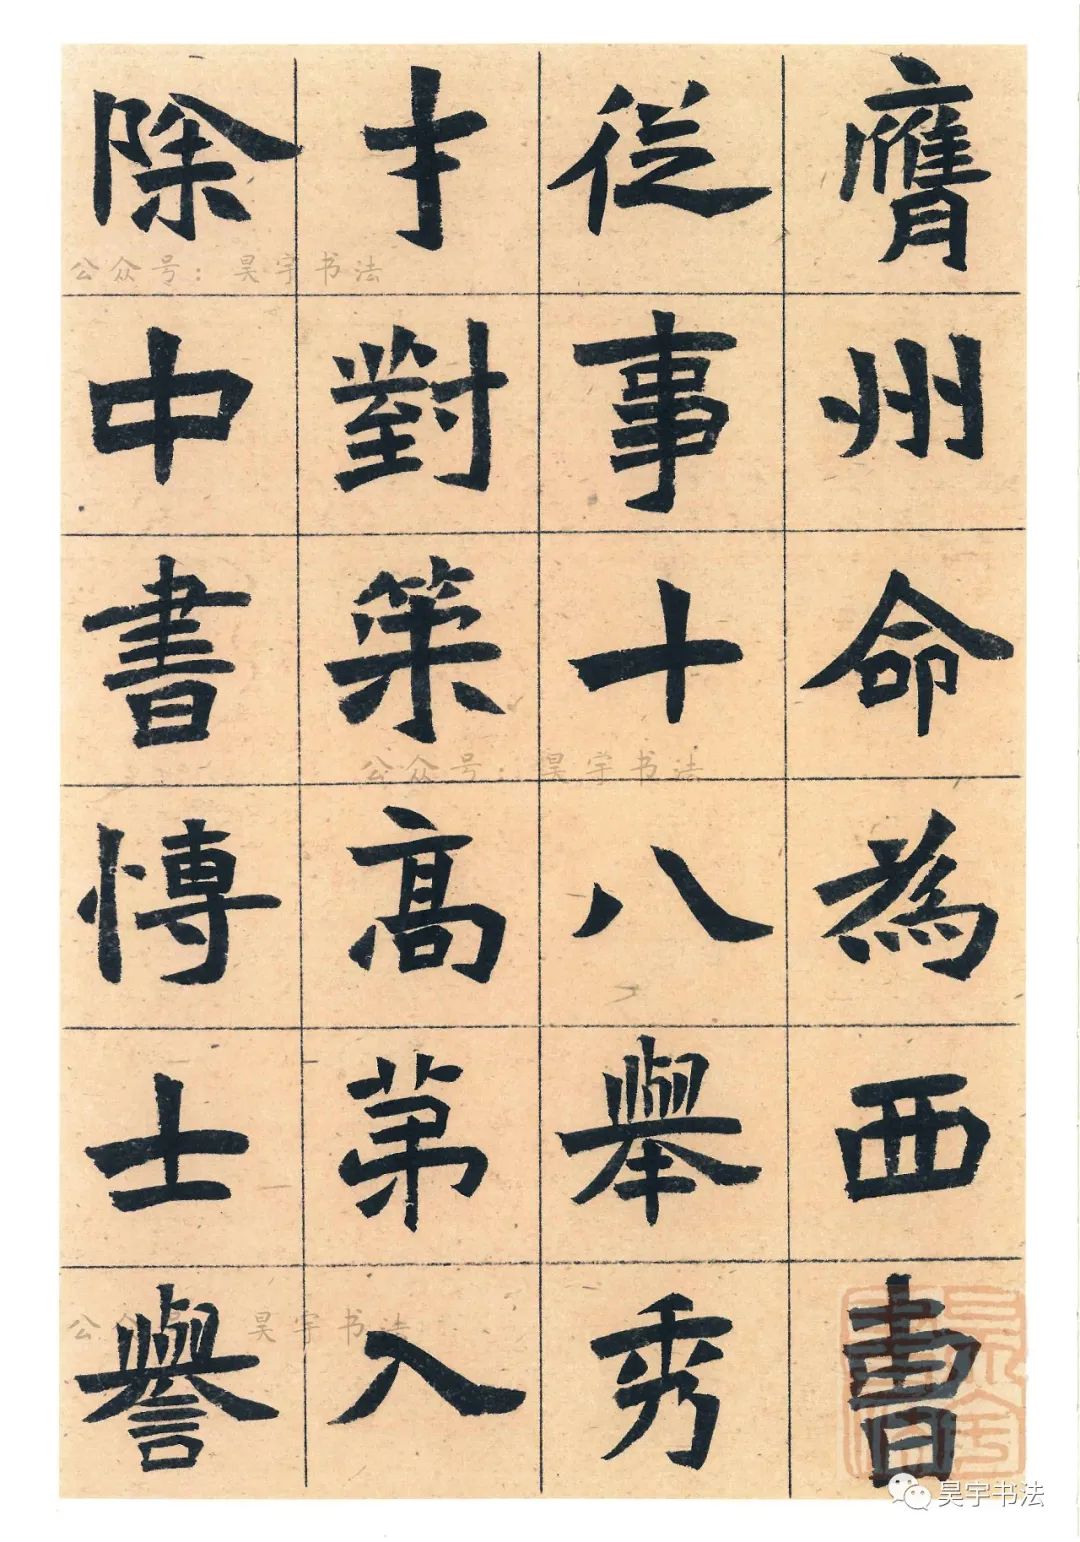 膺州命為西曹
從事十八舉秀
才對策高第入
除中書博士譽
公众号：昊宇书法
公众号：昊宇书法
公众号 昊宇书法
昊宇书法